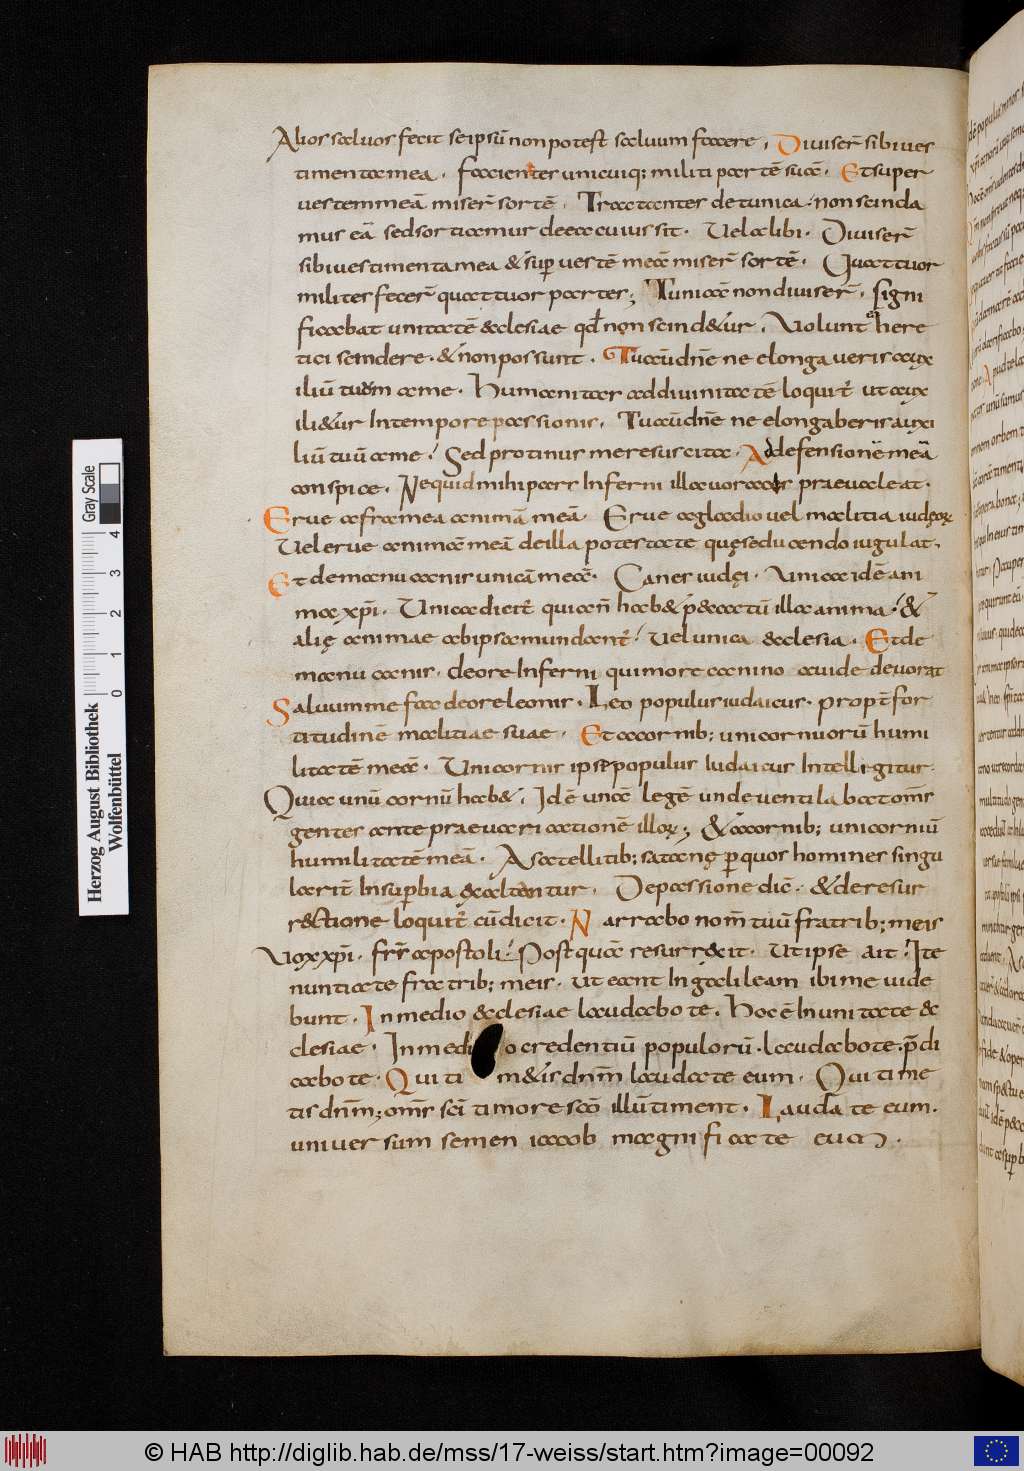 Alios saluos fecit seipsū non potest saluum facere. Diuiserꝉ sibi ues
timenta mea. facientes unicuiq; militi partē suā. Et super
uestem meā miserꝉ sortē. Tractantes de tunica. non scinda
mus eā sed sortiamur de ea cuius sit. Uel alibi. Diuiserꝉ
sibi uestimenta mea & sup uestē meā miserꝉ sortē. Quattuor
milites fecerꝉ quattuor partes; Tunicā non diuiserꝉ. signi
ficabat unitatē ecclesiae qđ non scind&ur. Uolunt here
tici scindere. & non possunt. Tu aū dn̄e ne elongaueris aux
iliū tuum a me. Humanitas ad diuinitatē loquit̄ ut aux
ili&ur In tempore passionis. Tu aū dn̄e ne elongaberis auxi
liū tuū a me. Sed protinus me resuscita. Ad defensionē meā
conspice. Nequid mihi pars Inferni illa uorax praeualeat.
Erue a framea animā meā Erue a gladio uel malitia iudęoꝝ
Uel erue animā meā de illa potestate quę seduando iugulat.
Et de manu canis unicā meā. Canes iudęi. Unica idē ani
ma xp̄i. Unica dicit̄ quia n̄ hab& p&catū illa anima. &
alię animae ab ipsa mundant̄. Uel unica ecclesia. Et de
manu canis. de ore Inferni qui more canino auide deuorat
Saluum me fac de ore leonis. Leo populus iudaicus. propt̄ for
titudinē malitiae suae. Et a cornib; unicornuorū humi
litatē meā. Unicornis ipse populus Iudaicus Intelligitur.
Quia unū cornū hab&. Idē unā legē unde uentilabat om̄s
gentes ante praeuaricationē illoꝝ; & a cornib; unicorniū
humilitatē meā. A satellitib; satanę p quos homines singu
larit̄ In supbia exaltantur. De passione dic̄. & de resur
r&ctione loquit̄ cū dicit. Narrabo nom̄ tuū fratrib; meis
Uox xp̄i. fr̄s apostoli. Postquā resurr&it. Ut ipse ait. Ite
nuntiate fratrib; meis. ut eant In galileam ibi me uide
bunt. In medio ecclesiae laudabo te. Hoc ē In unitate &c
clesiae. In medio credentiū populorū. laudabo te. p̄di
cabo te. Qui tim&is dn̄m laudate eum. Qui time
tis dn̄m; om̄s sc̄i timore sc̄o illū timent. Laudate eum.
uniuersum semen iacob magnificate eum.
Herzog August Bibliothek
Wolfenbüttel
Gray Scale
0 1 2 3 4
© HAB http://diglib.hab.de/mss/17-weiss/start.htm?image=00092